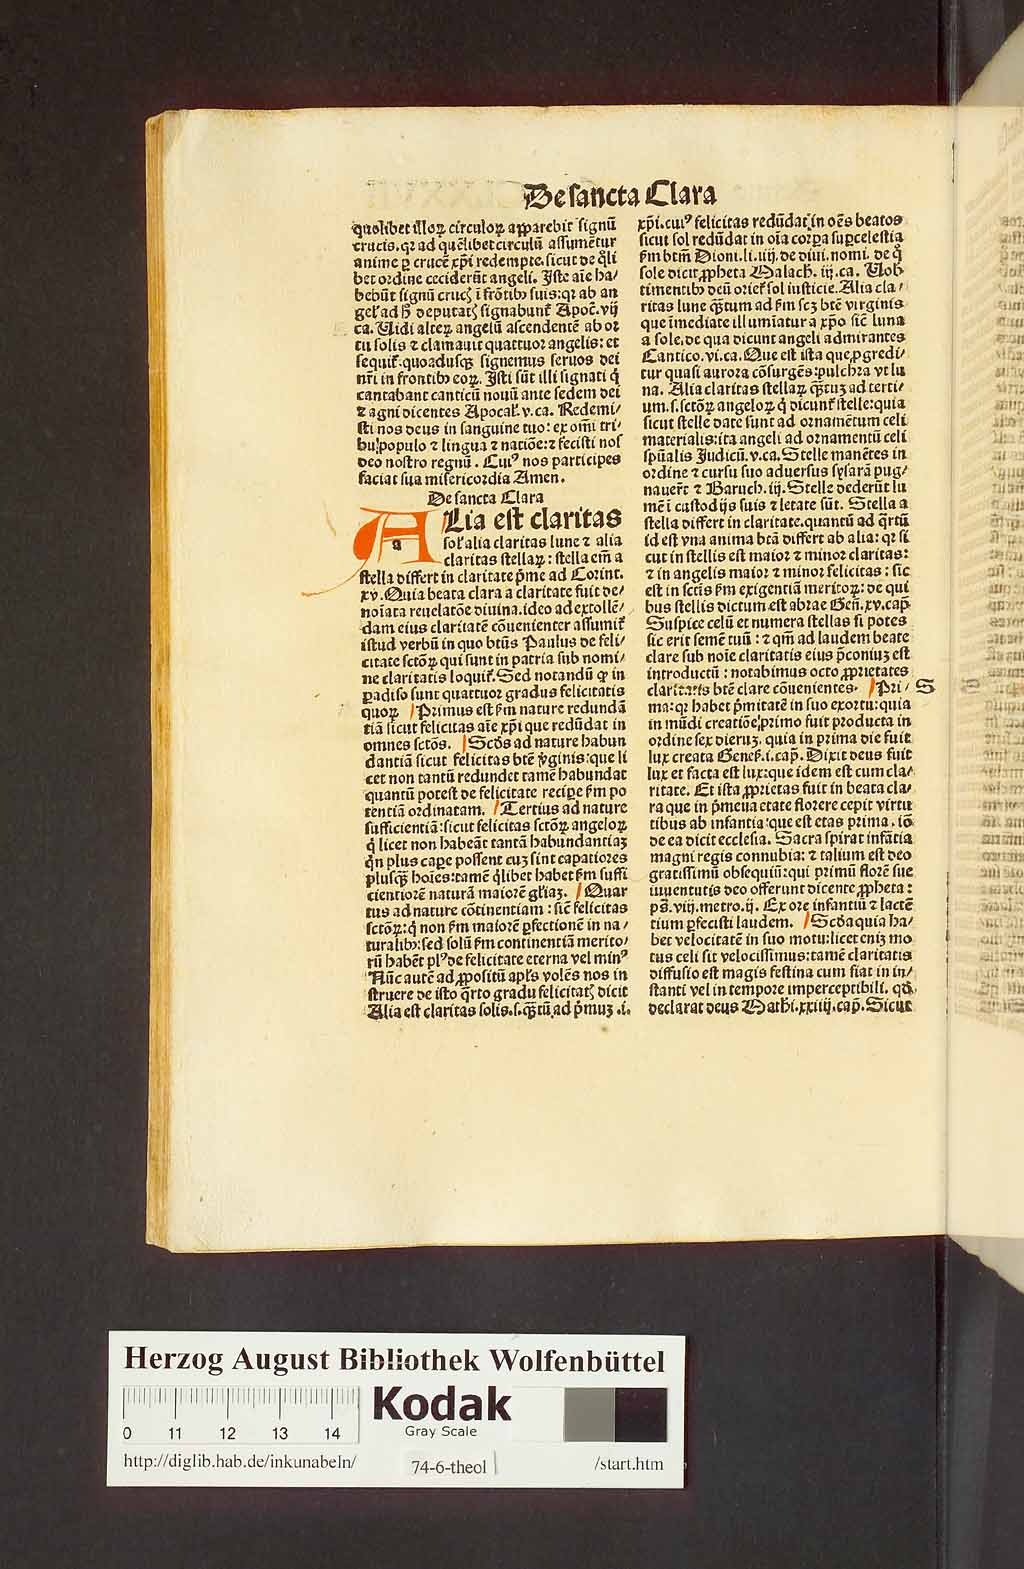 De sancta Clara
quolibet illoꝝ circuloꝝ apparebit signū
crucis. qꝛ ad quēlibet circulū assumētur
anime ꝑ crucē xp̄i redempte. sicut de q̄li
bet ordine ceciderūt angeli. Iste aīe ha/
bebūt signū cruc̄ ī frōtibꝰ suis: qꝛ ab an
gel̓ ad ħ deputat̄ signabunt̄ Apoc̄. vij
ca. Uidi alteꝝ angelū ascendentē ab oꝛ
tu solis ⁊ clamauit quattuor angelis: et
sequit̄. quoadusqꝫ signemus seruos dei
nr̄i in frontibꝰ eoꝝ. Isti sūt illi signati q̄
cantabant canticū nouū ante sedem dei
⁊ agni dicentes Apocal̓. v. ca. Redemi/
sti nos deus in sanguine tuo: ex om̄i tri
bu populo ⁊ lingua ⁊ natiōe: ⁊ fecisti nos
deo nostro regnū. Cuiꝰ nos participes
faciat sua misericordia Amen.
De sancta Clara
ALia est claritas
sol̓ alia claritas lune ⁊ alia
claritas stellaꝝ: stella em̄ a
stella differt in claritate p̄me ad Corint.
xv. Quia beata clara a claritate fuit de/
noīata reuelatōe diuina. ideo ad extollē/
dam eius claritatē cōuenienter assumit̄
istud verbū in quo btūs Paulus de feli/
citate sctōꝝ qui sunt in patria sub nomi/
ne claritatis loquit̄. Sed notandū ꝙ in
ꝑadiso sunt quattuor gradus felicitatis
quoꝝ Primus est ẜm nature redundā
tiā sicut felicitas aīe xp̄i que redūdat in
omnes sctōs. Scd̄s ad nature habun
dantiā sicut felicitas btē v̓ginis: que li
cet non tantū redundet tamē habundat
quantū potest de felicitate recipe ẜm po
tentiā ordinatam. Tertius ad nature
sufficientiā: sicut felicitas sctōꝝ angeloꝝ
q̄ licet non habeāt tantā habundantiaꝫ
qn̄ plus capꝑe possent cuꝫ sint capatiores
plusqꝫ hoīes: tamē q̄libet habet ẜm suffi
cientiorē naturā maiorē gl̓iaꝫ. Quar
tus ad nature cōtinentiam: sic̄ felicitas
sctōꝝ: q̄ non ẜm maiorē ꝑfectionē in na/
turalibꝰ: sed solū ẜm continentiā merito/
rū habēt plꝰ de felicitate eterna vel minꝰ
Nūc autē ad ꝓpositū apl̓s volēs nos in
struere de isto q̄rto gradu felicitat̄ dicit
Alia est claritas solis. s. qꝫtū ad p̄muꝫ .i.
xp̄i. cuiꝰ felicitas redūdat in oēs beatos
sicut sol redūdat in oīa corꝑa suꝑcelestia
ẜm btm̄ Dioni. li. iiij. de diui. nomi. de q̊
sole dicit ꝓpheta Malach. iij. ca. Uob̓
timentibꝰ deū oriet̄ sol iusticie. Alia cla/
ritas lune qꝫtum ad ẜm scꝫ btē virginis
que īmediate illumīatur a xp̄o sic̄ luna
a sole. de qua dicunt angeli admirantes
Cantico. vi. ca. Que est ista que ꝓgredi/
tur quasi aurora cōsurgēs: pulchra vt lu
na. Alia claritas stellaꝝ qꝫtuꝫ ad terti/
um. s. sctōꝝ angeloꝝ q̄ dicunt̄ stelle: quia
sicut stelle date sunt ad ornamētum celi
materialis: ita angeli ad ornamentū celi
spūalis Judicū. v. ca. Stelle manētes in
ordine ⁊ cursu suo aduersus sysarā pug/
nauer̄t ⁊ Baruch. iij. Stelle dederūt lu
mē ī custodijs suis ⁊ letate sūt. Stella a
stella differt in claritate. quantū ad q̄rtū
id est vna anima btā differt ab alia: qꝛ si
cut in stellis est maior ⁊ minor claritas:
⁊ in angelis maior ⁊ minor felicitas: sic
est in sctīs ẜm exigentiā meritoꝝ: de qui
bus stellis dictum est abrae Gen̄. xv. cap̄
Suspice celū et numera stellas si potes
sic erit semē tuū: ⁊ qm̄ ad laudem beate
clare sub noīe claritatis eius p̄coniuꝫ est
introductū: notabimus octo ꝓprietates
claritatis btē clare cōuenientes. Pri/ S
ma: qꝛ habet p̄mitatē in suo exortu: quia
in mūdi creatiōe primo fuit producta in
ordine sex dieruꝫ. quia in prima die fuit
lux creata Genes̄. i. cap̄. Dixit deus fuit
lux et facta est lux: que idem est cum cla/
ritate. Et ista ꝓprietas fuit in beata cla/
ra que in p̄meua etate florere cepit virtu
tibus ab infantia: que est etas prima. iō
de ea dicit ecclesia. Sacra spirat infātia
magni regis connubia: ⁊ talium est deo
gratissimū obsequiū: qui primū florē sue
iuuentutis deo offerunt dicente ꝓpheta:
ps̄. viij. metro. ij. Ex ore infantiū ⁊ lactē
tium ꝑfecisti laudem. Scd̄a quia ha/
bet velocitatē in suo motu: licet eniꝫ mo
tus celi sit velocissimus: tamē claritatis
diffusio est magis festina cum fiat in in/
stanti vel in tempore imperceptibili. qd̄
declarat deus Math̓. xxiiij. cap̄. Sicut
Herzog August Bibliothek Wolfenbüttel
0 11 12 13 14
Kodak
Gray Scale
http://diglib.hab.de/inkunabeln/ 74-6-theol /start.htm